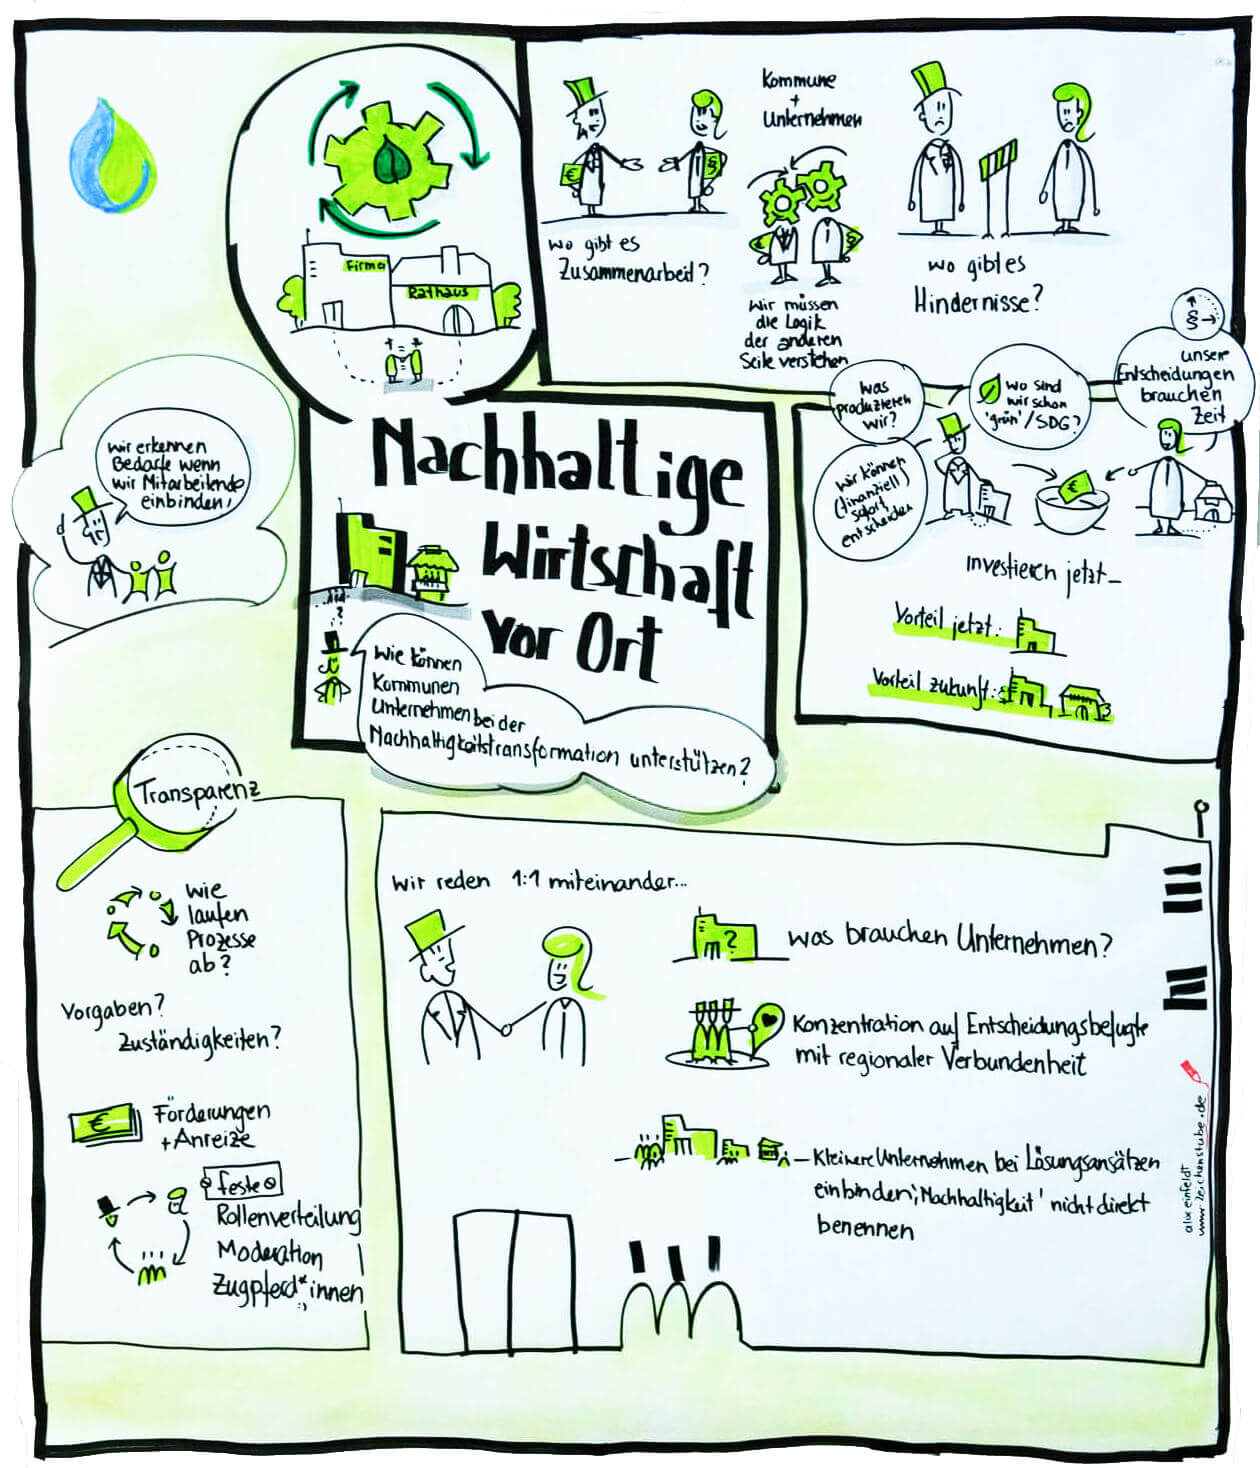 Firma
Rathaus
Kommune
+
Unternehmen
€
§
wo gibt es
Zusammenarbeit?
€
§
Wir müssen
die Logik
der anderen
Seite verstehen
wo gibt es
Hindernisse?
wir erkennen
Bedarfe wenn
wir Mitarbeitende
einbinden!
Nachhaltige
Wirtschaft
vor Ort
?
Wie können
Kommunen
Unternehmen bei der
Nachhaltigkeitstransformation unterstützen?
was
produzieren
wir?
wo sind
wir schon
'grün'/SDG?
§
unsere
Entscheidungen
brauchen
Zeit
wir können
(finanziell)
sofort
entscheiden
€
Investieren jetzt_
Vorteil jetzt:
Vorteil zukunft:
Transparenz
wie
laufen
Prozesse
ab?
Vorgaben?
Zuständigkeiten?
€
Förderungen
+Anreize
feste
Rollenverteilung
Moderation
Zugpferd*innen
:)
Wir reden 1:1 miteinander...
?
was brauchen Unternehmen?
Konzentration auf Entscheidungsbefugte
mit regionaler Verbundenheit
Kleinere Unternehmen bei Lösungsansätzen
einbinden, 'Nachhaltigkeit' nicht direkt
benennen
alix einfeldt
www.zeichenstube.de